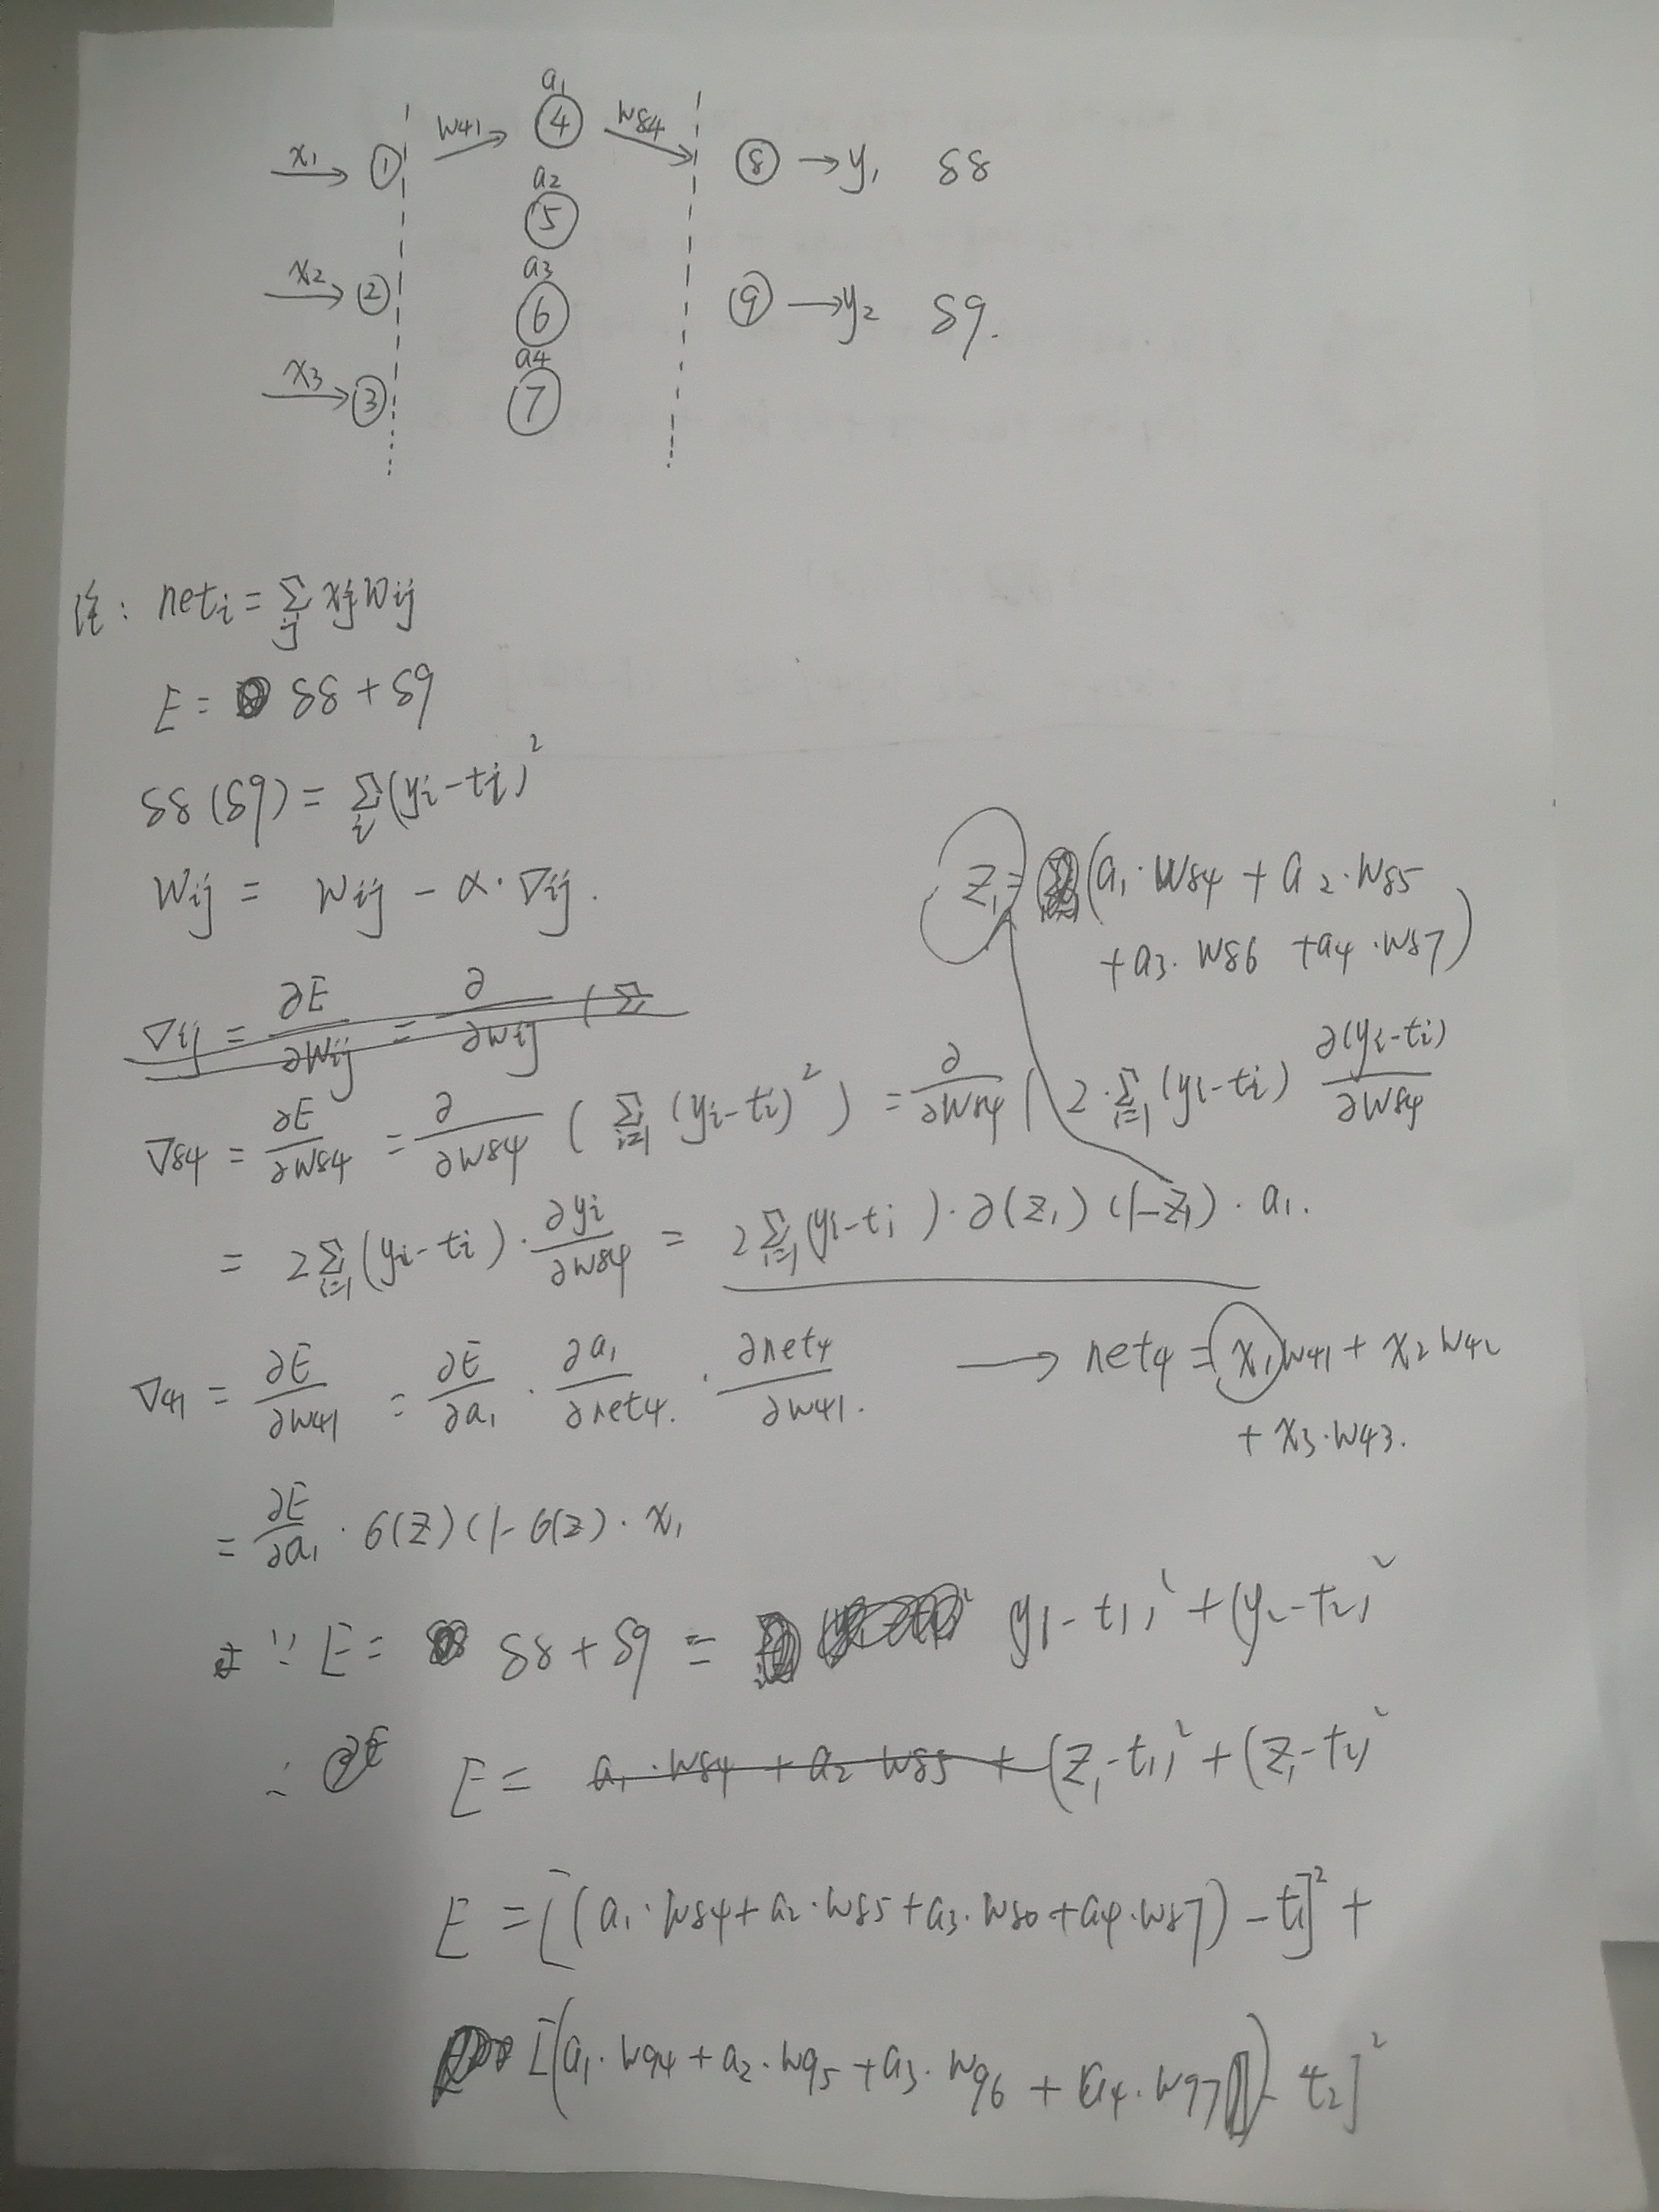 a1
x1 ① w41 ④ w84 ⑧ →y1 δ8
a2
⑤
x2 ② a3 ⑨ →y2 δ9.
⑥
x3 ③ a4
⑦
注: neti = Σj xj wij
E = δ8 + δ9
δ8 (δ9) = Σi (yi-ti)²
Wij = Wij - α·∇ij.
z1 = (a1·W84 + a2·W85
+a3·W86 +a4·W87)
∇ij = ∂E/∂Wij = ∂/∂wij (Σ
∇84 = ∂E/∂W84 = ∂/∂W84 ( Σi=1 (yi-ti)² ) = ∂/∂W84 ( 2·Σi=1 (yi-ti) ∂(yi-ti)/∂W84
= 2Σi=1 (yi-ti)·∂yi/∂W84 = 2Σi=1 (yi-ti)·∂(z1)(1-z1)·a1.
∇41 = ∂E/∂W41 = ∂E/∂a1 · ∂a1/∂net4. · ∂net4/∂W41. → net4 = x1w41 + x2 w42
+ x3·W43.
= ∂E/∂a1 · 6(z)(1-6(z)·x1
∵ E = δ8 + δ9 = y1-t1)² + (y2-t2)²
∴ ∂E E = a1·W84 + a2 W85 + (z1-t1)² + (z1-t2)²
E = [(a1·W84+a2·W85+a3·W86+a4·W87) - t1]² +
[(a1·W94 + a2·W95 +a3·W96 + a4·W97) - t2]²